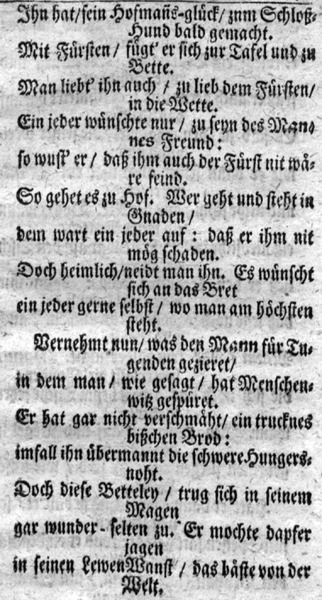 Ihn hat/ sein Hofmañs-glück/ zum Schloß-
Hund bald gemacht.
Mit Fürsten/ fügt' er sich zur Tafel und zu
Bette.
Man liebt' ihn auch/ zu lieb dem Fürsten/
in die Wette.
Ein jeder wünschte nur/ zu seyn des Man-
nes Freund:
so wust' er/ daß ihm auch der Fürst nit wä-
re feind.
So gehet es zu Hof. Wer geht und steht in
Gnaden/
dem wart ein jeder auf: daß er ihm nit
mög schaden.
Doch heimlich/ neidt man ihn. Es wünscht
sich an das Bret
ein jeder gerne selbst/ wo man am höchsten
steht.
Vernehmt nun/ was den Mann für Tu-
genden gezieret/
in dem man/ wie gesagt/ hat Menschen-
witz gespüret.
Er hat gar nicht verschmäht/ ein trucknes
bißchen Brod:
imfall ihn übermannt die schwere Hungers-
noht.
Doch diese Betteley/ trug sich in seinem
Magen
gar wunder-selten zu. Er mochte dapfer
jagen
in seinen LewenWanst/ das bäste von der
Welt.